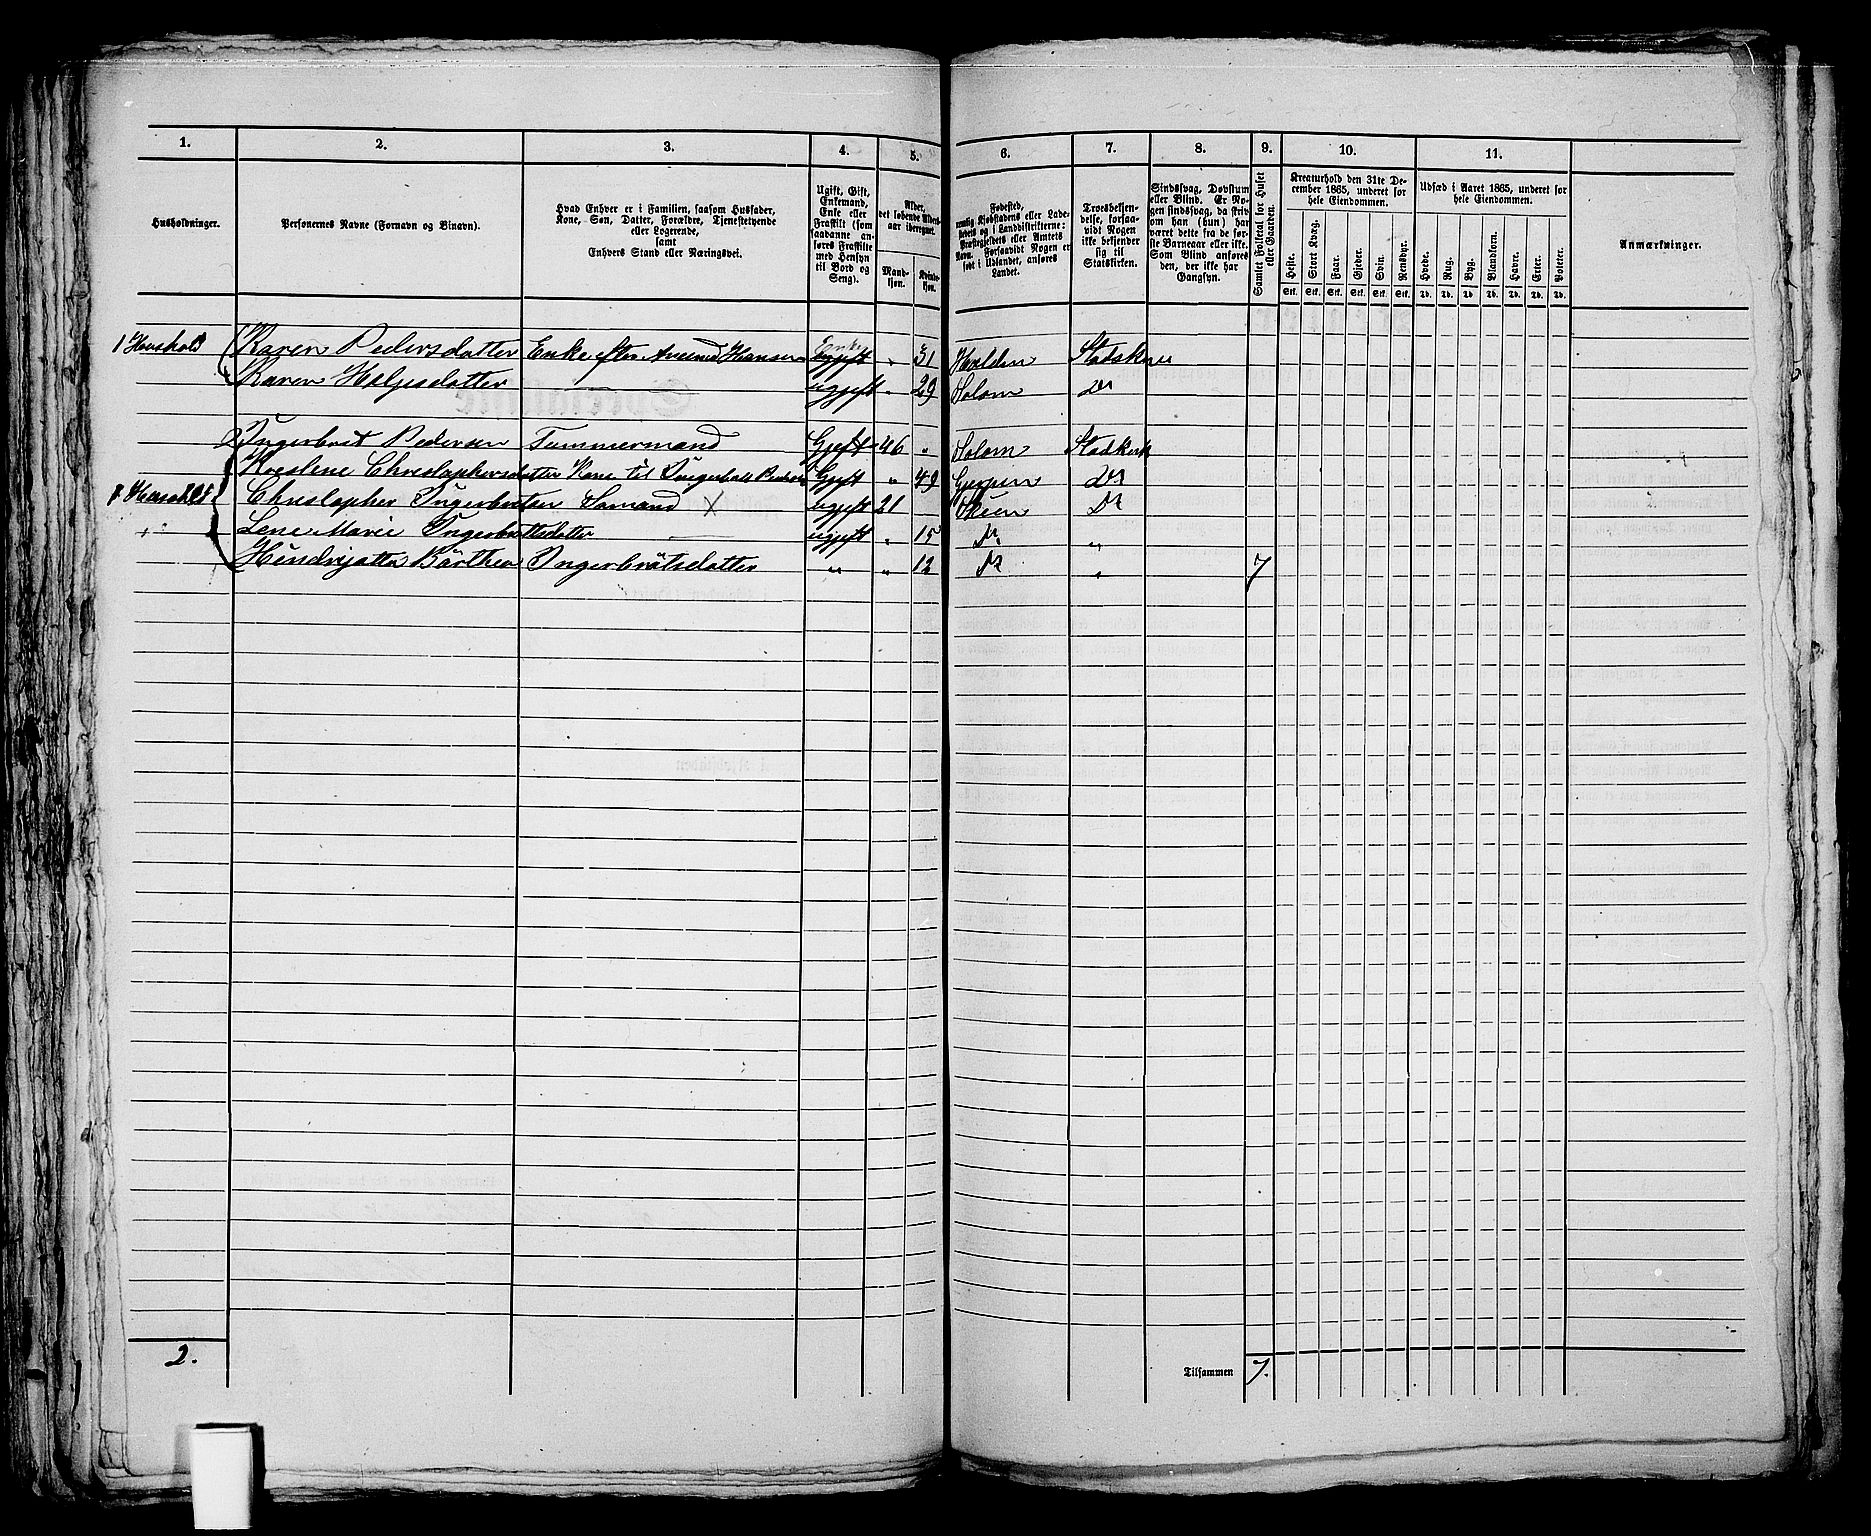 1. 2. 3. 4. 5. 6. 7. 8. 9. 10. 11.
Husholdninger.
Personernes Navne (Fornavn og Binavn).
Hvad Enhver er i Familien, saasom Husfader,
Kone, Søn, Datter, Forældre, Tjenestetyende
eller Logerende,
samt
Enhvers Stand eller Næringsvei.
Ugift, Gift,
Enkemand,
Enke eller
Fraskilt (som
saadanne an-
føres Fraskilte
med Hensyn
til Bord og
Seng).
Alder,
det løbende Alders-
aar iberegnet.
Mand-
kjøn.
Kvinde-
kjøn.
Fødested,
nemlig Kjøbstadens eller Lade-
stedets og i Landdistrikterne:
Præstegjeldets eller Amtets
Navn. Forsaavidt Nogen er
født i Udlandet, anføres
Landet.
Troesbekjen-
delse, forsaa-
vidt Nogen
ikke bekjender
sig til
Statskirken.
Sindssvag, Døvstum
eller Blind. Er No-
gen sindssvag, da skriv
om han (hun) har
været dette fra de før-
ste Barneaar eller ikke.
Som Blind anføres
den, der ikke har
Gangsyn.
Samlet Folketal for Huset
eller Gaarden.
Kreaturhold den 31te De-
cember 1865, underet for
hele Eiendommen.
Heste. Stort Kvæg. Faar. Gjeder. Svin. Rensdyr.
Stk. Stk. Stk. Stk. Stk. Stk.
Udsæd i Aaret 1865, underet for
hele Eiendommen.
Hvede. Rug. Byg. Blandkorn. Havre. Erter. Poteter.
Td. Td. Td. Td. Td. Td. Td.
Anmærkninger.
1 Huushold Karen Pedersdatter Enke efter Amund Hansen Enke ugjeft " 31 Holden Stadskirke
Karen Holjesdatter ugjeft " 29 Solom Do
Ingerbret Pedersen Tømmermand Gjeft 46 " Solom Stadkirk
Christophersdatter Kone til Gjeft " 49 Gjerpen Do
Huushold Christopher Ingerbretsen Sømand X ugjeft 21 Skien Do
" Lene Marie Ingerbretsdatter ugjeft " 15 Do "
Ingerbrotsdatter " " 12 Do " 7
2.
Tilsammen 7.